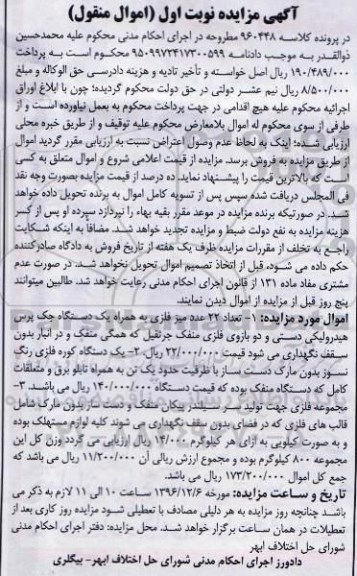 آگهی مزایده نوبت اول (اموال منقول)
در پرونده کلاسه ۹۶۰۴۴۸ مطروحه در اجرای احکام مدنی محکوم علیه محمدحسین
ذوالقدر به موجب دادنامه ۹۵۰۹۹۷۲۴۱۷۳۰۰۵۹۹ محکوم است به پرداخت
۱۹۰/۴۸۹/۰۰۰ ریال اصل خواسته و تأخیر تادیه و هزینه دادرسی حق الوکاله و مبلغ
۸/۵۰۰/۰۰۰ ریال نیم عشر دولتی در حق دولت محکوم گردیده؛ چون با ابلاغ اوراق
اجرائیه محکوم علیه هیچ اقدامی در جهت پرداخت محکوم به بعمل نیاورده است و از
طرفی از سوی محکوم له اموال بلامعارض محکوم علیه توقیف و از طریق خبره محلی
ارزیابی شده؛ اینک به لحاظ عدم وصول اعتراض نسبت به ارزیابی مقرر گردید اموال
از طریق مزایده به فروش برسد. مزایده از قیمت اعلامی شروع و اموال متعلق به کسی
است که بالاترین قیمت را پیشنهاد نماید. ده درصد از قیمت مزایده بصورت وجه نقد
فی المجلس دریافت شده سپس پس از تسویه کامل اموال به برنده تحویل داده خواهد
شد. در صورتیکه برنده مزایده در موعد مقرر بقیه بهاء را نپردازد سپرده او پس از کسر
هزینه مزایده به نفع دولت ضبط و مزایده تجدید خواهد شد. مضافا به اینکه شکایت
راجع به تخلف از مقررات مزایده ظرف یک هفته از تاریخ فروش به دادگاه صادرکننده
حکم داده می شود، قبل از اتخاذ تصمیم اموال تحویل نخواهد شد. در صورت عدم
مشتری مفاد ماده ۱۳۱ از قانون اجرای احکام مدنی رعایت خواهد شد. طالبین میتوانند
پنج روز قبل از مزایده از اموال دیدن نمایند.
اموال مورد مزایده: ۱- تعداد ۲۲ عدد میز فلزی به همراه یک دستگاه جک پرس
هیدرولیکی دستی و دو بازوی فلزی منفک جرثقیل که همگی منفک و در انبار بدون
سقف نگهداری می شود قیمت ۲۲/۰۰۰/۰۰۰ ریال. ۲- یک دستگاه کوره فلزی رنگ
نسوز بدون مارک دست ساز با ظرفیت حدود یک تن به همراه تابلو برق و متعلقات
کامل که دستگاه منفک بوده که قیمت دستگاه ۱۴۰/۰۰۰/۰۰۰ ریال می باشد. ۳-
مجموعه فلزی جهت تولید بسر سیلندر پیکان منفک و دست ساز بدون مارک شامل
قالب های فلزی که در فضای بدون سقف نگهداری می شوند کلیه لوازم مستهلک بوده
و به صورت کیلویی به ازای هر کیلوگرم ۱۴/۰۰۰ ریال ارزیابی می گردد وزن کل این
مجموعه ۸۰۰ کیلوگرم بوده و مجموع ارزش ریالی آن ۱۱/۲۰۰/۰۰۰ ریال می باشد که
جمع کل اموال ۱۷۳/۲۰۰/۰۰۰ ریال می باشد.
تاریخ و ساعت مزایده: مورخه ۱۳۹۶/۱۲/۶ ساعت ۱۰ الی ۱۱ لازم به ذکر می
باشد چنانچه روز مزایده به هر دلیلی مصادف با تعطیلی شود مزایده روز کاری بعد از
تعطیلات در همان ساعت برگزار خواهد شد. محل مزایده: دفتر اجرای احکام مدنی
شورای حل اختلاف ابهر
دادورز اجرای احکام مدنی شورای حل اختلاف ابهر- بیگلری